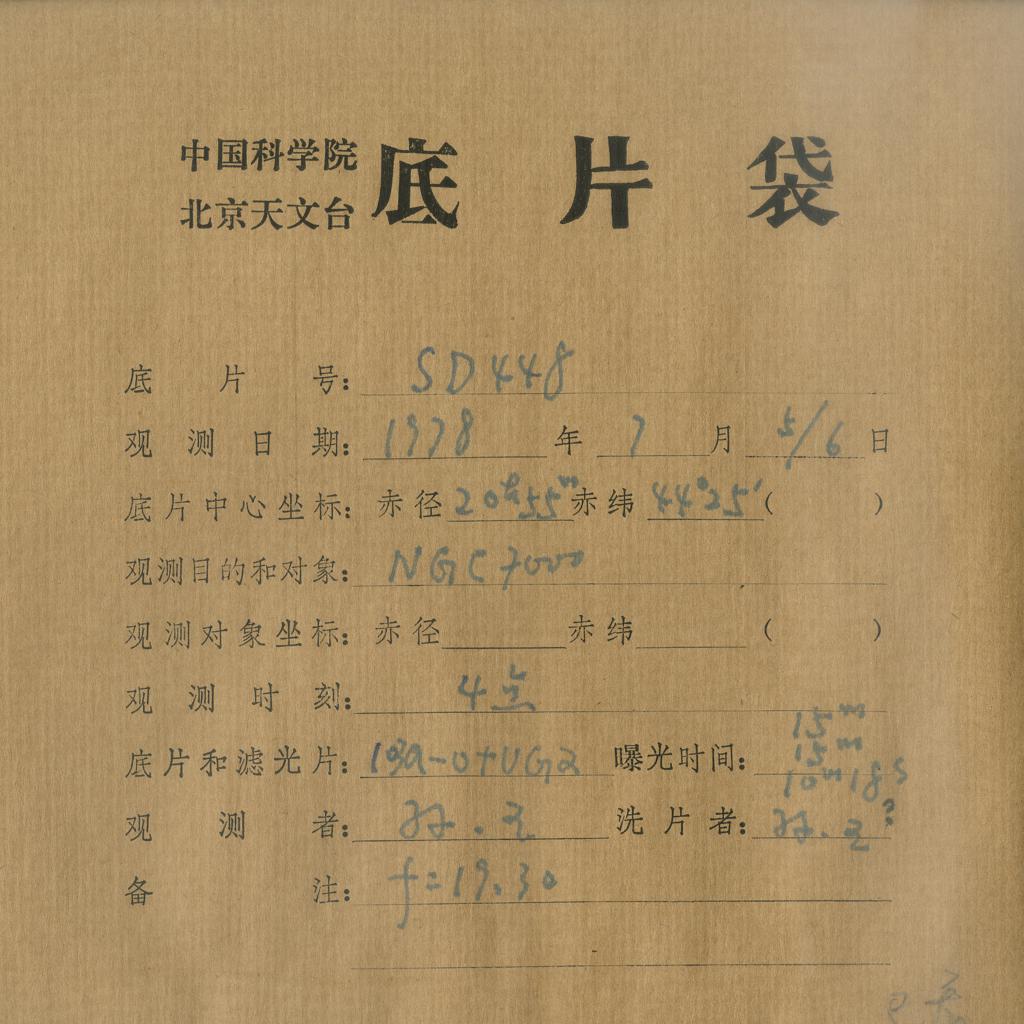 中国科学院
北京天文台
底片袋
底片号: SD448
观测日期: 1978年7月5/6日
底片中心坐标: 赤径20h55m赤纬44°25′( )
观测目的和对象: NGC7000
观测对象坐标: 赤径 赤纬 ( )
观测时刻: 4点
底片和滤光片: 103a-O+UG2 曝光时间: 15m
15m
10m18s?
观测者: 孙.王 洗片者: 孙.王
备注: f=19.30